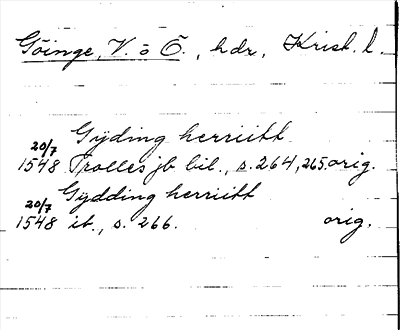 Göinge, V. o Ö., hdr, Krist. l.
Gÿding herriitt
20/7 1548 Trolles jb bil., s. 264, 265. orig.
Gÿdding herriitt
20/7 1548 ib., s. 266. orig.